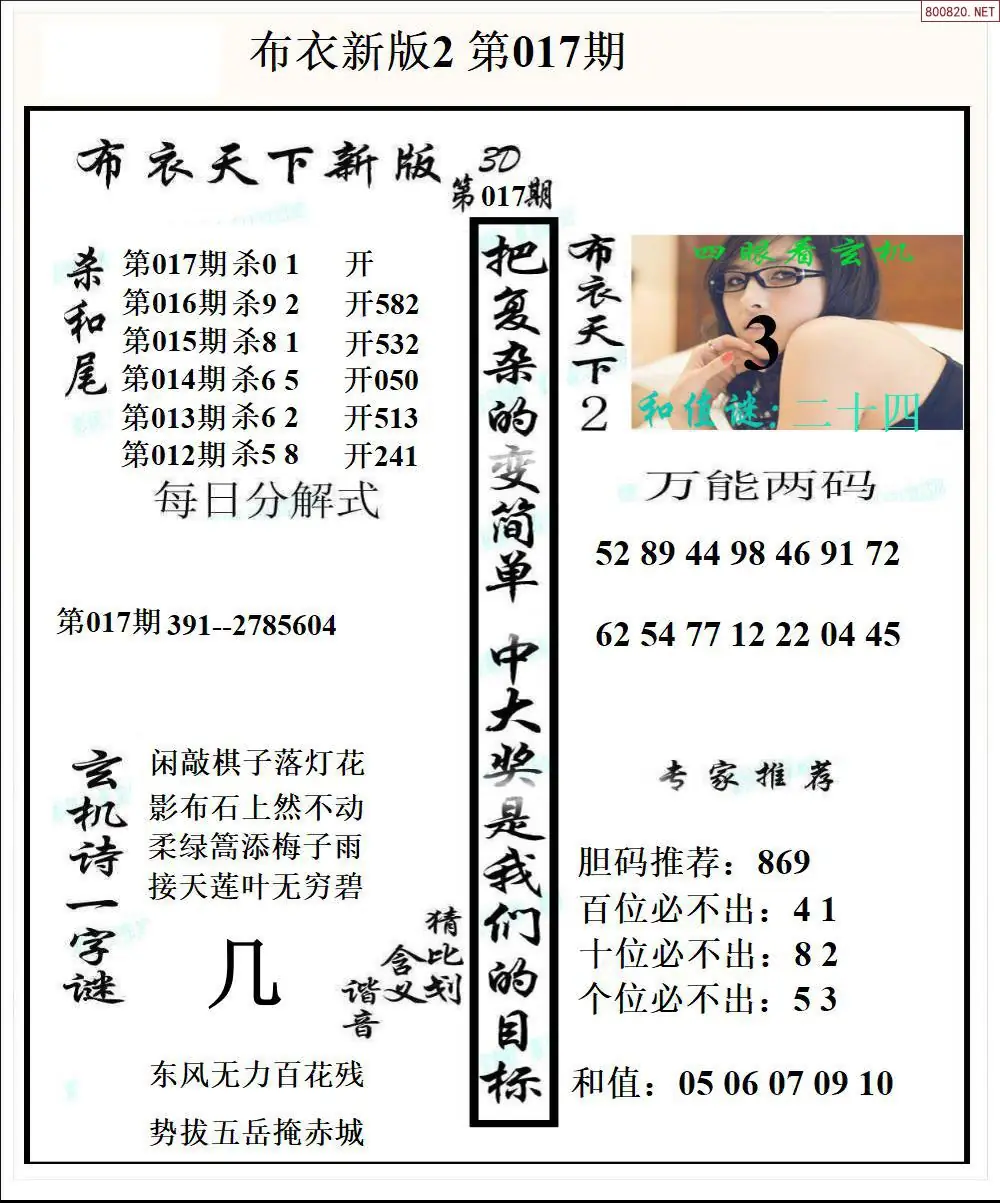 800820.NET
布衣新版2 第017期
布衣天下新版 3D
第017期
杀和尾
第017期 杀0 1 开
第016期 杀9 2 开582
第015期 杀8 1 开532
第014期 杀6 5 开050
第013期 杀6 2 开513
第012期 杀5 8 开241
每日分解式
第017期 391--2785604
玄机诗一字谜
闲敲棋子落灯花
影布石上然不动
柔绿篙添梅子雨
接天莲叶无穷碧
几
猜比划
含义
谐音
东风无力百花残
势拔五岳掩赤城
把复杂的变简单 中大奖是我们的目标
布衣天下2
四眼看玄机
3
和值谜: 二十四
万能两码
52 89 44 98 46 91 72
62 54 77 12 22 04 45
专家推荐
胆码推荐：869
百位必不出：4 1
十位必不出：8 2
个位必不出：5 3
和值：05 06 07 09 10